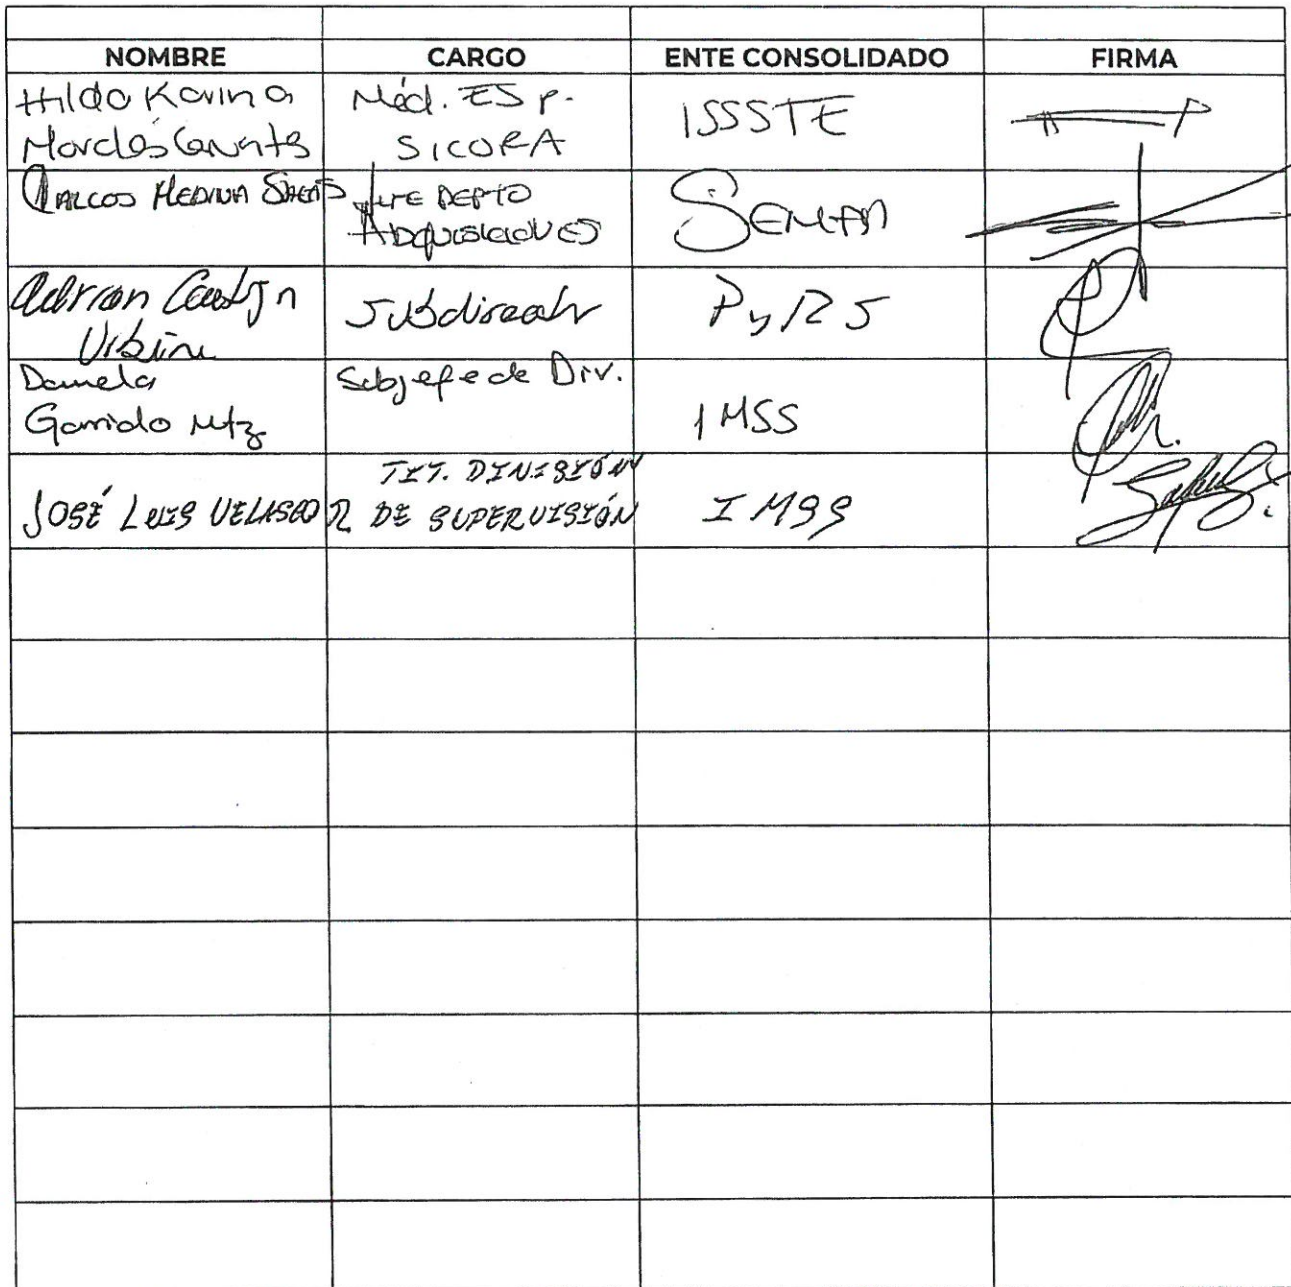 NOMBRE CARGO ENTE CONSOLIDADO FIRMA
Hilda Karina
Méd. ESP.
SICORA
ISSSTE
MARCOS MEDINA
JEFE DEPTO
ADQUISICIONES
SEMAR
Adrian
Subdirector
PyRS
Daniela
Garrido Mtz
Subjefe de Div.
IMSS
JOSÉ LUIS VELASCO R
TIT. DIVISIÓN
DE SUPERVISIÓN
IMSS